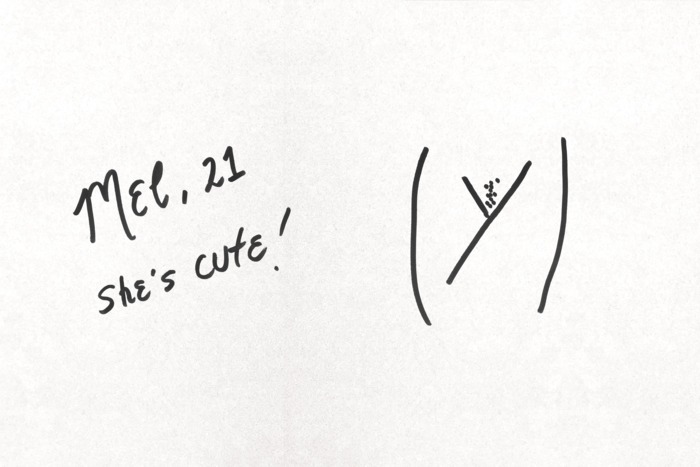 Mel, 21
she's cute!
(Y)